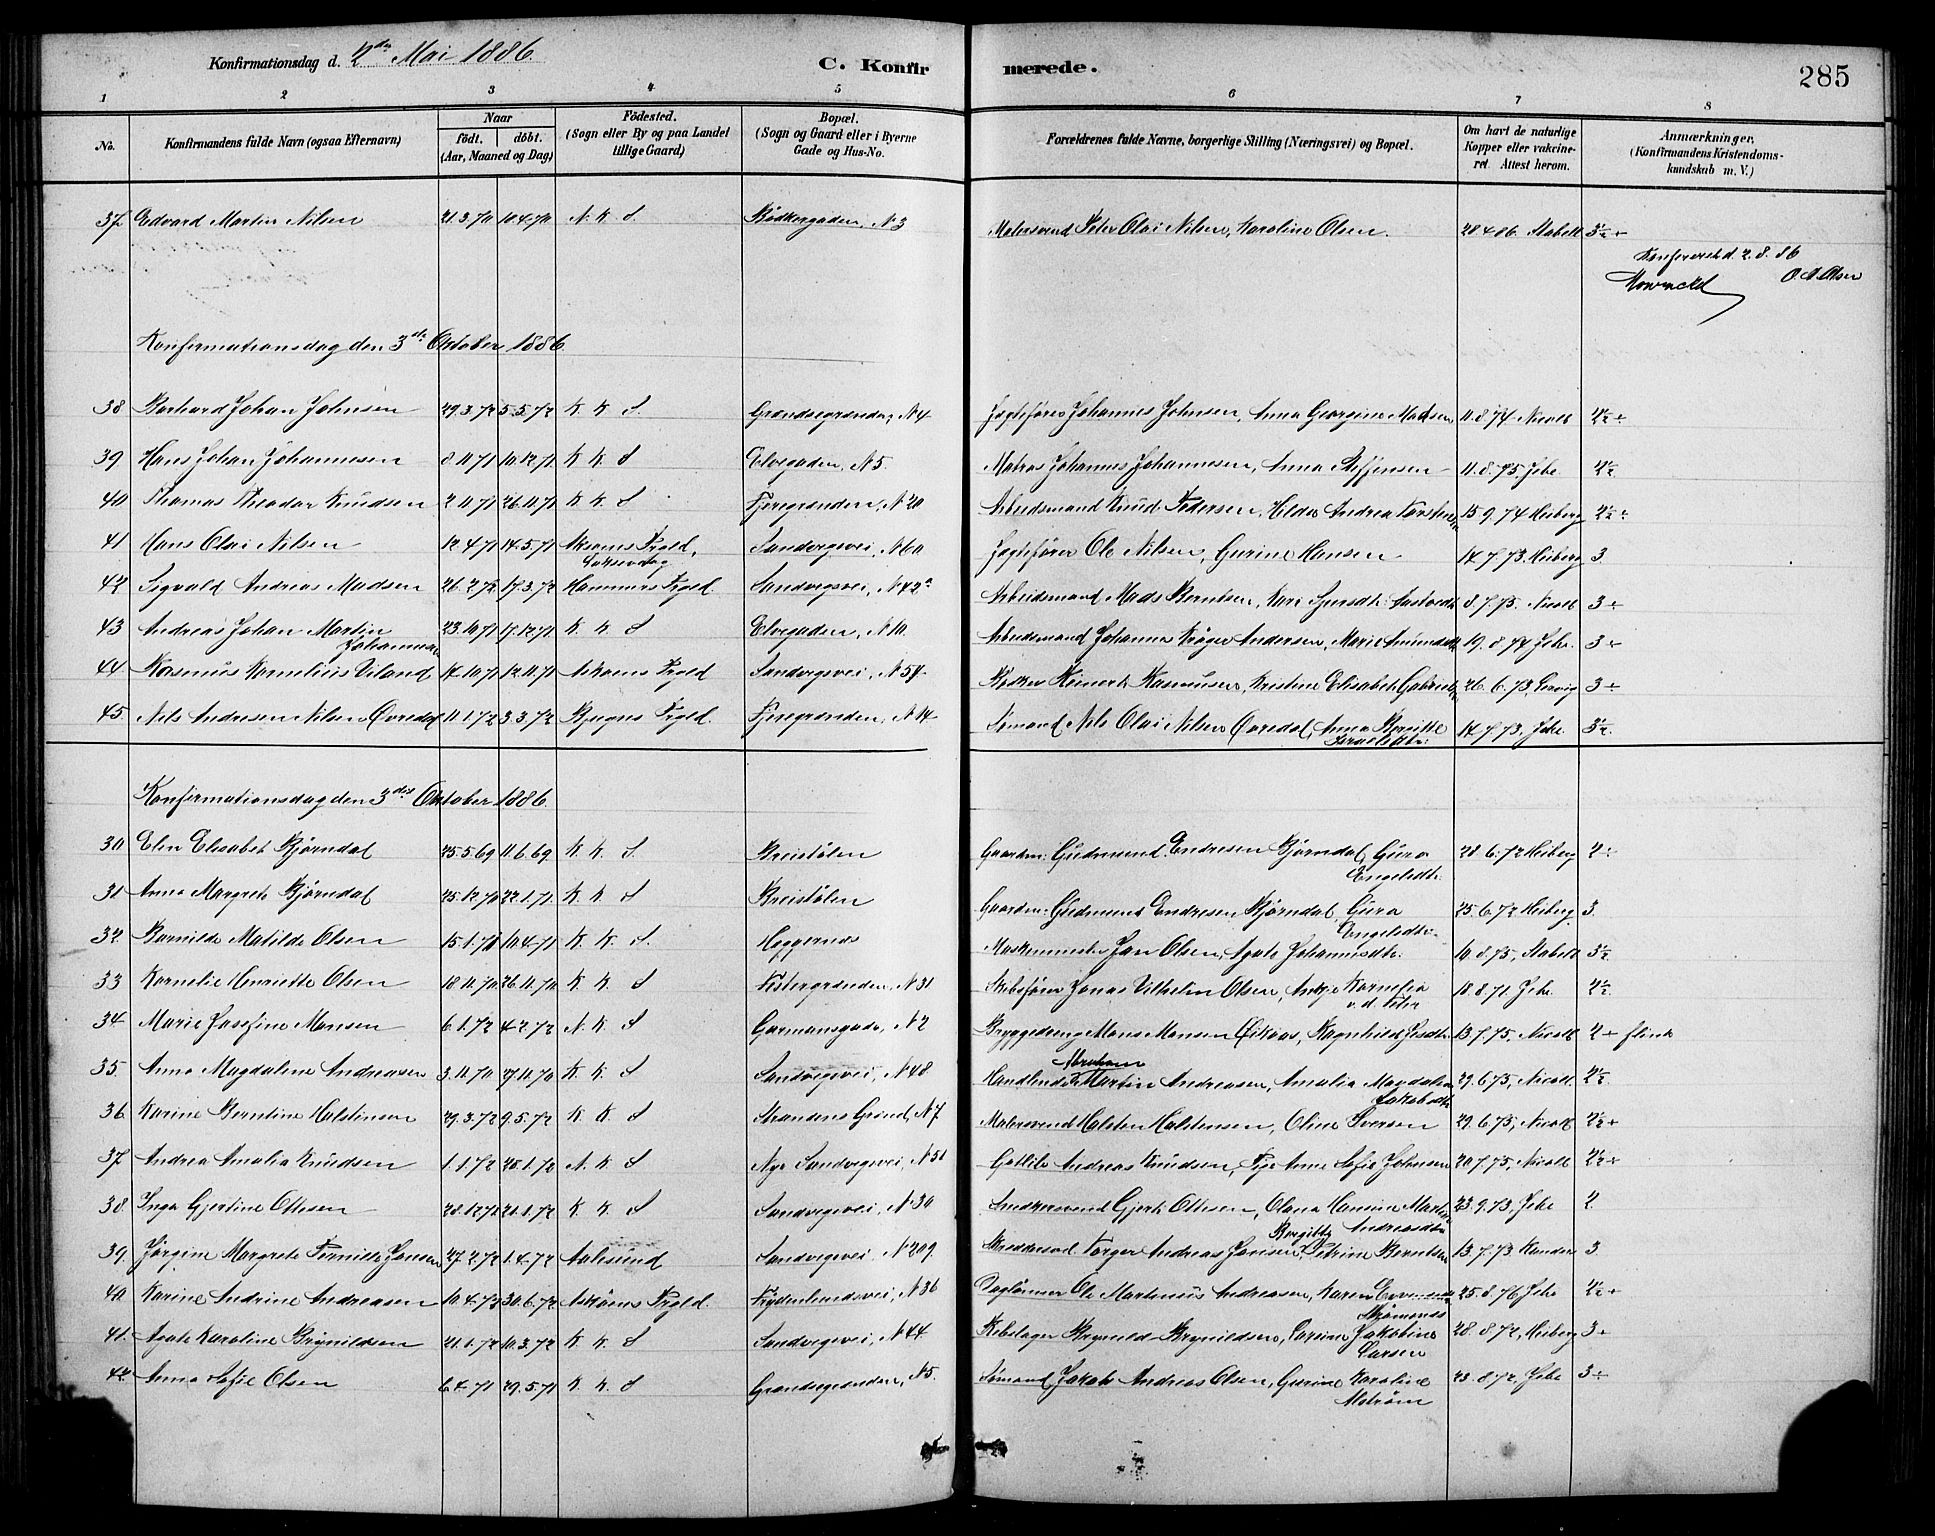 Konfirmationsdag d. 2den Mai 1886.
C. Konfirmerede.
285
1 2 3 4 5 6 7 8
No.
Konfirmandens fulde Navn (ogsaa Efternavn)
Naar
födt. döbt.
(Aar, Maaned og Dag)
Födested.
(Sogn eller By og paa Landet
tillige Gaard)
Bopæl.
(Sogn og Gaard eller i Byerne
Gade og Hus-No.
Forældrenes fulde Navne, borgerlige Stilling (Næringsvei) og Bopæl.
Om havt de naturlige
Kopper eller vakcine-
ret. Attest herom.
Anmærkninger,
(Konfirmandens Kristendoms-
kundskab m. V.)
37 Edvard Martin Nilsen 21.3.70 10.4.70 N. K. S Bødkergaden, N 3 Malersvend Peter Olai Nilsen, Karoline Olsen. 28.4.86. Stabell 3½ +
Konfereret d. 2.8.86
O A Olsen
Konfirmationsdag den 3die Oktober 1886
38 Johan Johnsen 29.3.72 5.5.72 K. K. S. N 4 Jagtefører Johannes Johnsen, Anna Georgine Madsen 11.8.74 Nicoll 2½ ÷
39 Hans Johan Johannesen 8.11.71 10.12.71 K. K. S Elvegaden, N 5. Matros Johannes Johannesen, Anna Steffensen 11.8.75. Jebe. 2½
40 Thomas Theodor Knudsen 2.11.71 26.11.71 K. K. S Fjeregrænden, N 20 Arbeidsmand Knud Pedersen, Hilda Andrea 15.9.74 Heiberg 2½ ÷
41 Hans Olai Nilsen 12.4.71 14.5.71 Askøens Prgld, Sandvigsvei, N 60 Jagtefører Ole Nilsen, Gurine Hansen 14.7.73. Heiberg 3.
42 Sigvald Andreas Madsen 26.2.72 17.3.72 Hammers Prgld. Sandvigsvei, N 42a Arbeidsmand Mads Berntsen, Kari 8.7.75. Nicoll 3 ÷
43 Andreas Johan Martin
Johannesen 23.10.71 17.12.71 K. K. S Elvegaden, N 10. Arbeidsmand Johannes Krøger Andersen, Marie 19.8.74 Jebe. 3 ÷
44 Rasmus Kornelius Viland 17.10.71 12.11.71 Askøens Prgld Sandvigsvei, N 54. Bødker Reinert Rasmussen, Kristine Elisabeth 26.6.73 3 ÷
45. Nils Andresen Nilsen Øvredal 11.1.72 3.3.72 Bjugns Prgld. Fjeregrænden, N 14 Sømand Nils Olai Nilsen Øvredal, Anna Bergitte
Israelsdtr: 14.7.73. Jebe. 3½.
Konfirmationsdag den 3die Oktober 1886
30 Elen Elisabet Bjørndal 25.5.69 11.6.69 K. K. S. Breistølen Gaardm: Gudmund Endresen Bjørndal, Guro
Engelsdtr. 28.6.72 Heiberg 2 ÷
31 Anna Margrete Bjørndal 25.12.70 22.1.71. K. K. S Breistølen Gaardm: Gudmund Endresen Bjørndal, Guro
Engelsdtr. 25.6.72 Heiberg 3.
32. Matilde Olsen 15.1.71 10.4.71 K. K. S. Heggernes Maskinmester Jan Olsen, Agate Johannesdtr. 10.8.75, Stabell 3½
33 Kornelie Henriette Olsen 18.11.70 26.11.70 K. K. S N 31 Skibsfører Jonas Vilhelm Olsen, Antje Kornelia 18.8.71 Jebe. 2½
34. Marie Josefine Monsen 6.1.72 4.2.72 N. K. S Gormansgade, N 2 Bryggedreng Mons Monsen Eikaas, Ragnhild 13.7.75, Nicoll 2 + flink
35. Anna Magdalene Andreasen 3.11.70 27.11.70 K. K. S Sandvigsvei, N 48. Handlende Abraham Martin Andreasen, Amalia Magdalena
Jakobsdtr 29.6.75, Nicoll 2½.
36 Karine Berntine Halstensen 29.3.72 9.5.72 K. K. S Strandens Grænd, N 7 Malersvend Halsten Halstensen, Oline Iversen 29.6.75, Nicoll 2½ +
37. Andrea Amalia Knudsen 1.1.72 25.1.72 N. K. S Nye Sandvigsvei, N 51 Gotlib Andreas Knudsen, Anne Sofie Johnsen 20.7.75, Nicoll 2½ +
38. Inga Gjertine Ottesen 28.12.71 21.1.72 K. K. S Sandvigsvei, N 30 Snedkersvend Gjert Ottesen, Olava Hansine
Andreasdtr 23.9.73 Jebe 2
39. Jørgine Margrete Pernille Jansen 27.2.72 1.4.72 Aalesund Sandvigsvei, N 209. Skreddersvd Torger Andreas Jansen, Bergitte Petrine Berntsen 13.7.73 3.
40. Karine Andrine Andreasen 10.4.72 30.6.72 Askøens Prgld. Frydenlundsvei, N 36 Daglønner Ole Martinus Andreasen, Karen
Strømsnes 25.8.76 Jebe 2½ +
41. Agate Karoline Brynildsen 21.1.72 10.3.72 K. K. S Sandvigsvei, N 44 Rebslager Brynild Brynildsen, Jakobine
Larsen 28.8.72, Heiberg 3 ÷
42. Anna Sofie Olsen 6.4.71 29.5.71 K. K. S N 5. Sømand Jakob Andreas Olsen, Gurine Karoline
Alstrøm 23.8.72. Jebe 3 ÷